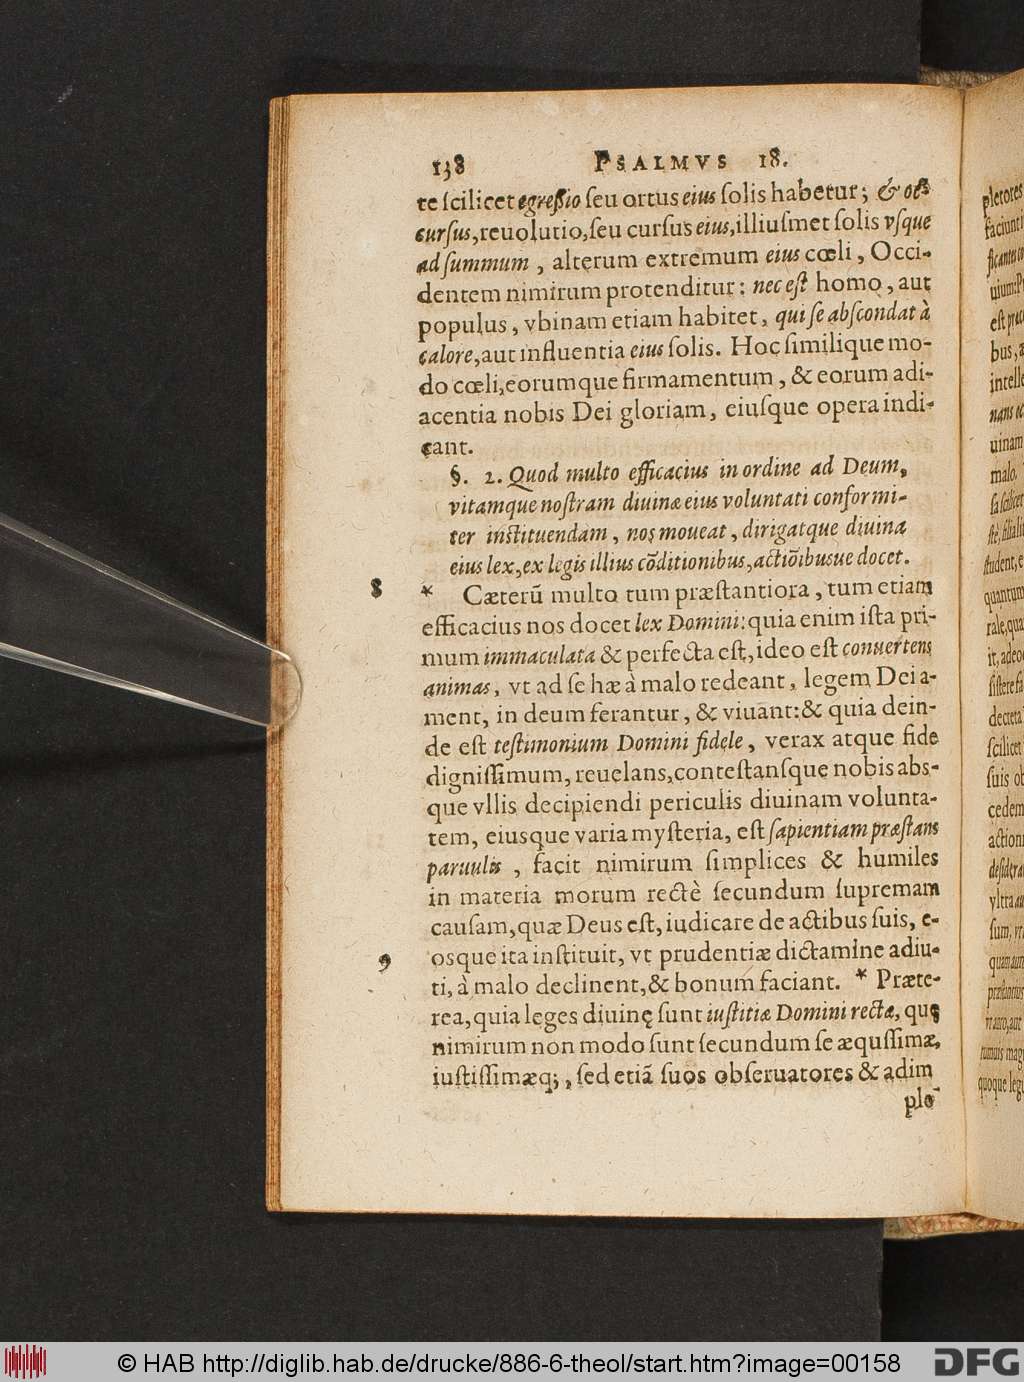 138 PSALMVS 18.
te ſcilicet egreſsio ſeu ortus eius ſolis habetur; & oc
curſus, reuolutio, ſeu curſus eius, illiuſmet ſolis vſque
ad ſummum, alterum extremum eius cœli, Occi-
dentem nimirum protenditur: nec eſt homo, aut
populus, vbinam etiam habitet, qui ſe abſcondat à
calore, aut influentia eius ſolis. Hoc ſimilique mo-
do cœli, eorumque firmamentum, & eorum adi-
acentia nobis Dei gloriam, eiuſque opera indi-
cant.
§. 2. Quod multo efficacius in ordine ad Deum,
vitamque noſtram diuinæ eius voluntati conformi-
ter inſtituendam, nos moueat, dirigatque diuina
eius lex, ex legis illius cōditionibus, actiōibusue docet.
8 * Cæterū multo tum præſtantiora, tum etiam
efficacius nos docet lex Domini: quia enim iſta pri-
mum immaculata & perfecta eſt, ideo eſt conuertens
animas, vt ad ſe hæ à malo redeant, legem Dei a-
ment, in deum ferantur, & viuant: & quia dein-
de eſt teſtimonium Domini fidele, verax atque fide
digniſſimum, reuelans, conteſtanſque nobis abs-
que vllis decipiendi periculis diuinam volunta-
tem, eiusque varia myſteria, eſt ſapientiam præſtans
paruulis, facit nimirum ſimplices & humiles
in materia morum rectè ſecundum ſupremam
cauſam, quæ Deus eſt, iudicare de actibus ſuis, e-
9 osque ita inſtituit, vt prudentiæ dictamine adiu-
ti, à malo declinent, & bonum faciant. * Præte-
rea, quia leges diuinę ſunt iuſtitiæ Domini rectæ, quę
nimirum non modo ſunt ſecundum ſe æquſſimæ,
iuſtiſſimæq;, ſed etiã ſuos obſeruatores & adim
ple
pletores
faciunt
bus,
uinam
malo.
ſtudent, e
quantum
ſcilicet
cedem
ſum, vt
quoque leg
© HAB http://diglib.hab.de/drucke/886-6-theol/start.htm?image=00158 DFG